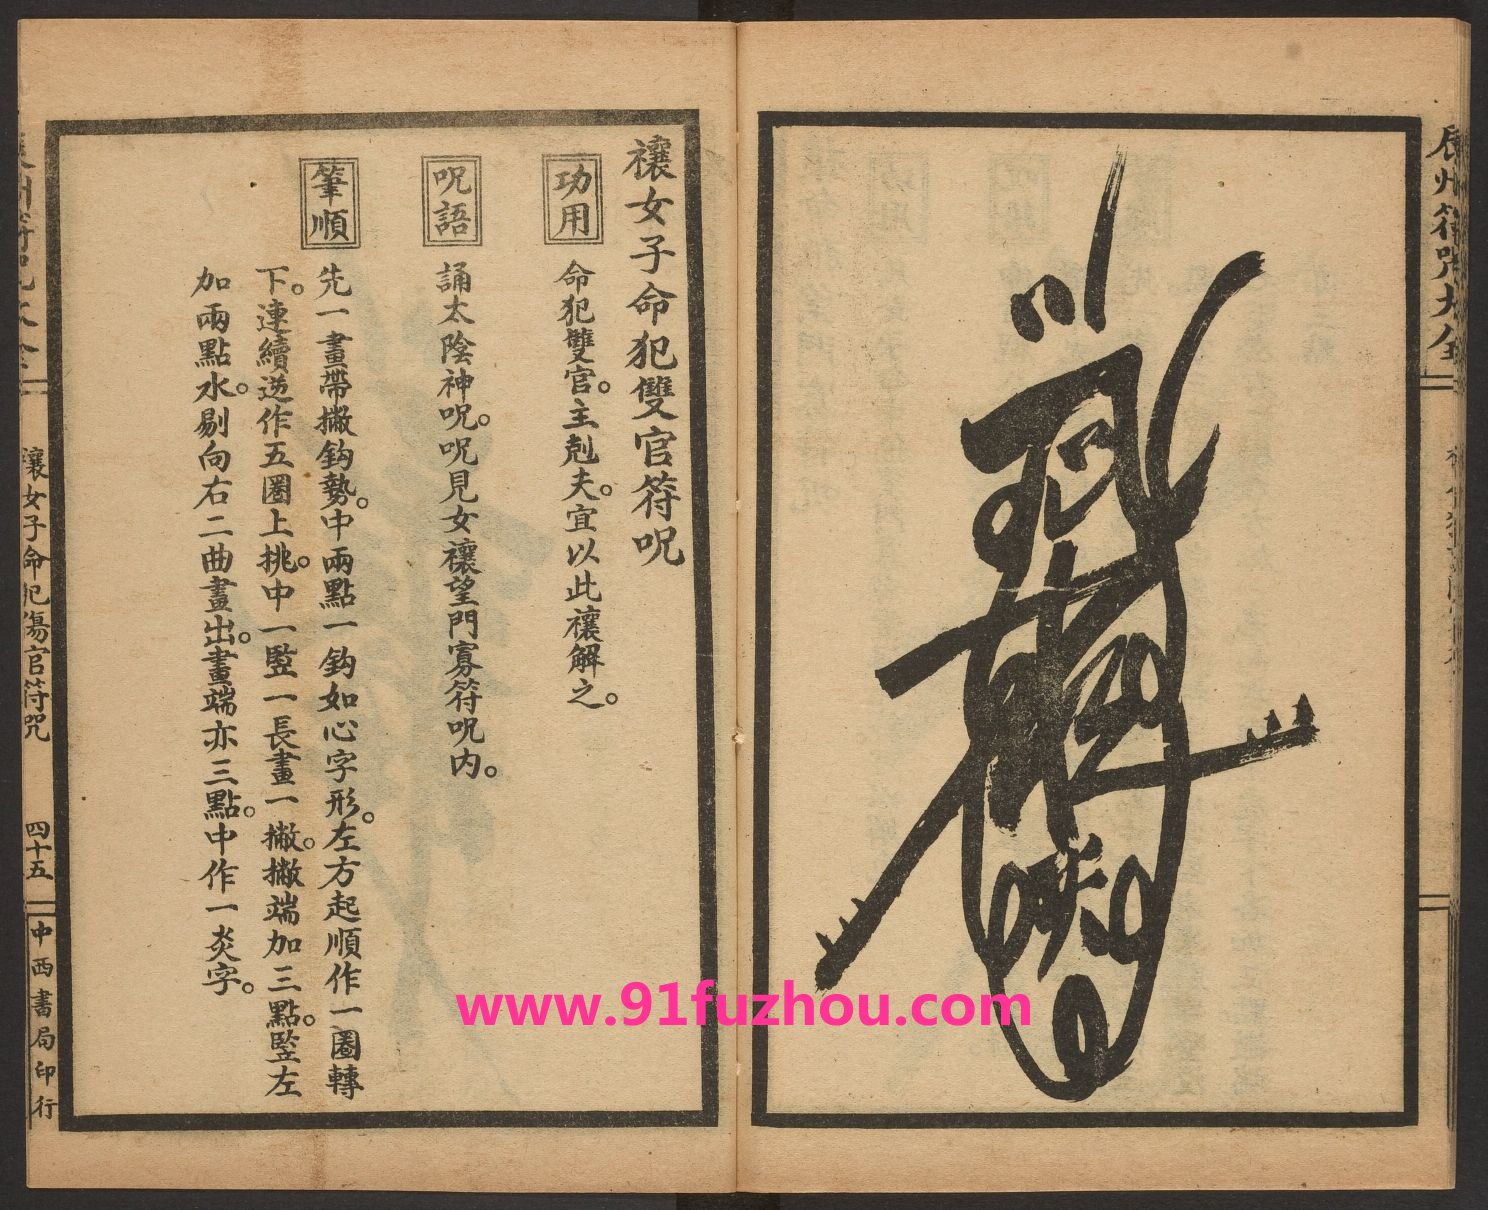 辰州符咒大全
禳女子命犯雙官符呪
功用
命犯雙官。主剋夫。宜以此禳解之。
呪語
誦太陰神呪。呪見女禳望門寡符呪内。
筆順
先一畫帶撇鈎勢。中兩點一鈎如心字形。左方起順作一圈轉
下。連續逆作五圈上挑。中一竪一長畫一撇。撇端加三點。竪左
加兩點水。剔向右二曲畫出。畫端亦三點。中作一炎字。
禳女子命犯傷官符咒
四十五
中西書局印行
www.91fuzhou.com